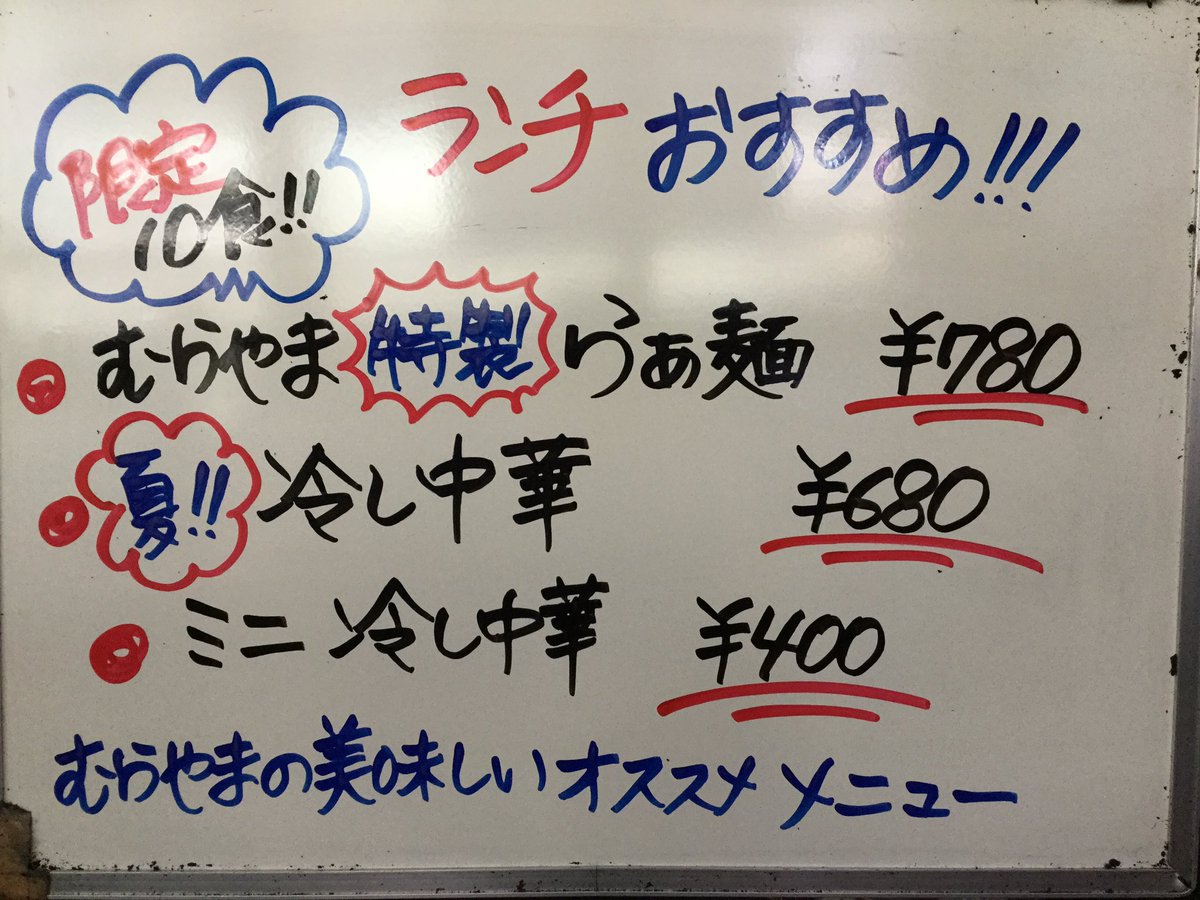 限定
10食!!
ランチ おすすめ!!!
むらやま 特製 らぁ麺 ¥780
夏!! 冷し中華 ¥680
ミニ 冷し中華 ¥400
むらやまの美味しいオススメメニュー